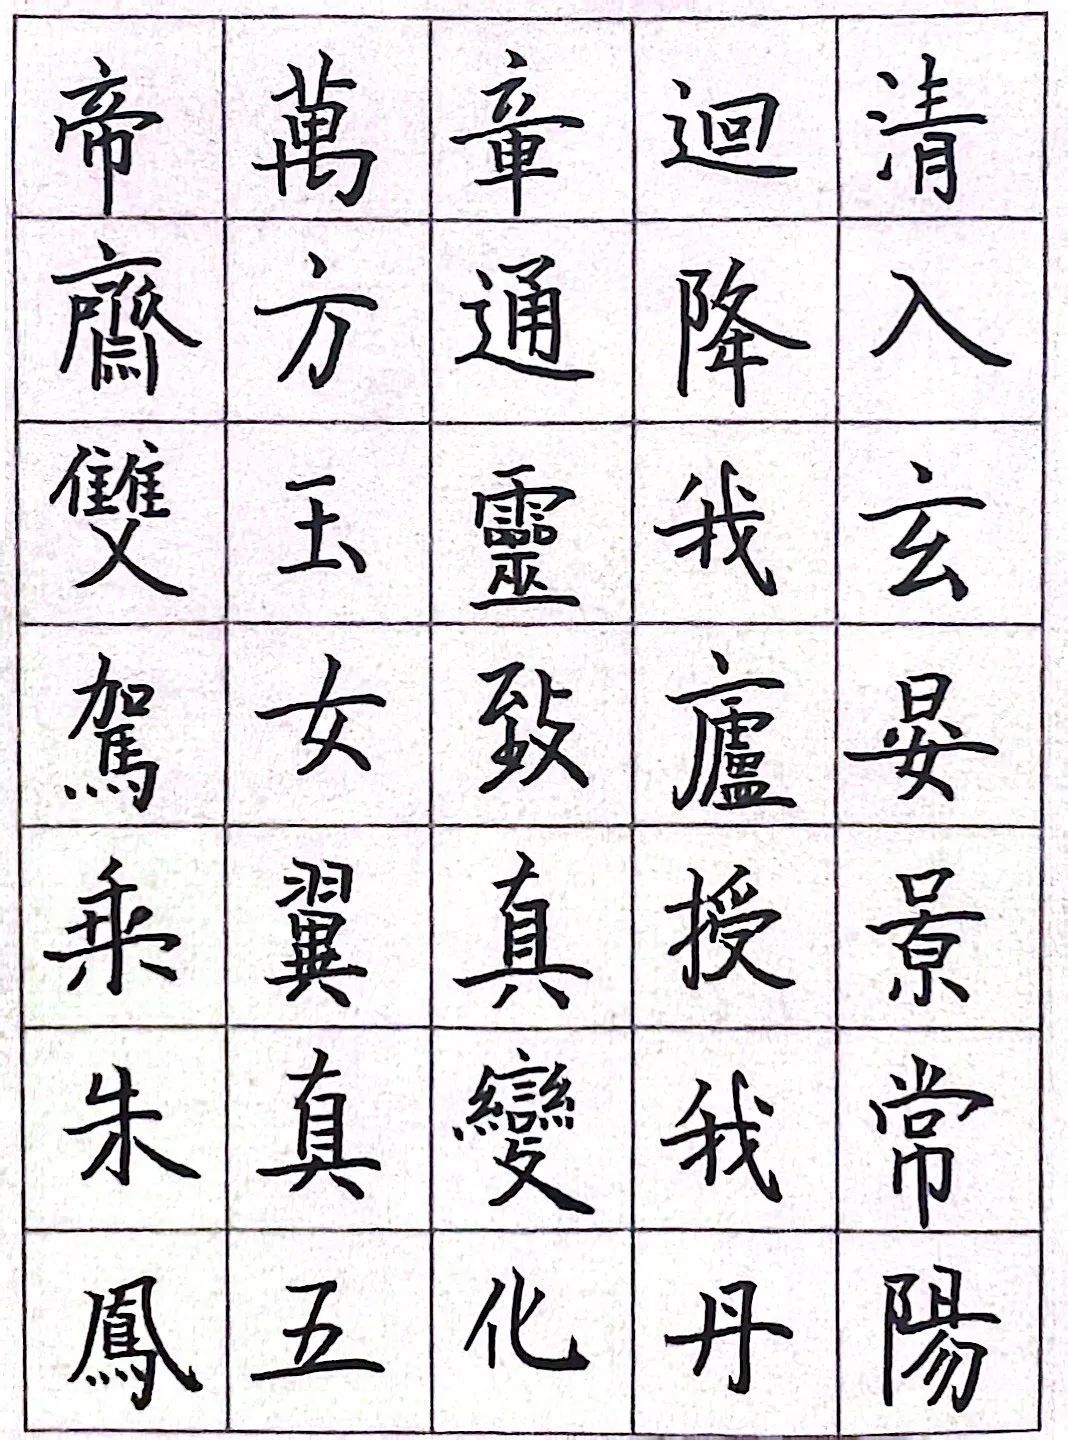 清入玄晏景常陽
迴降我廬授我丹
章通靈致真變化
萬方玉女翼真五
帝齊雙駕乘朱鳳